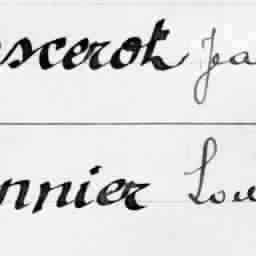 scerot Jea
nnier Lou